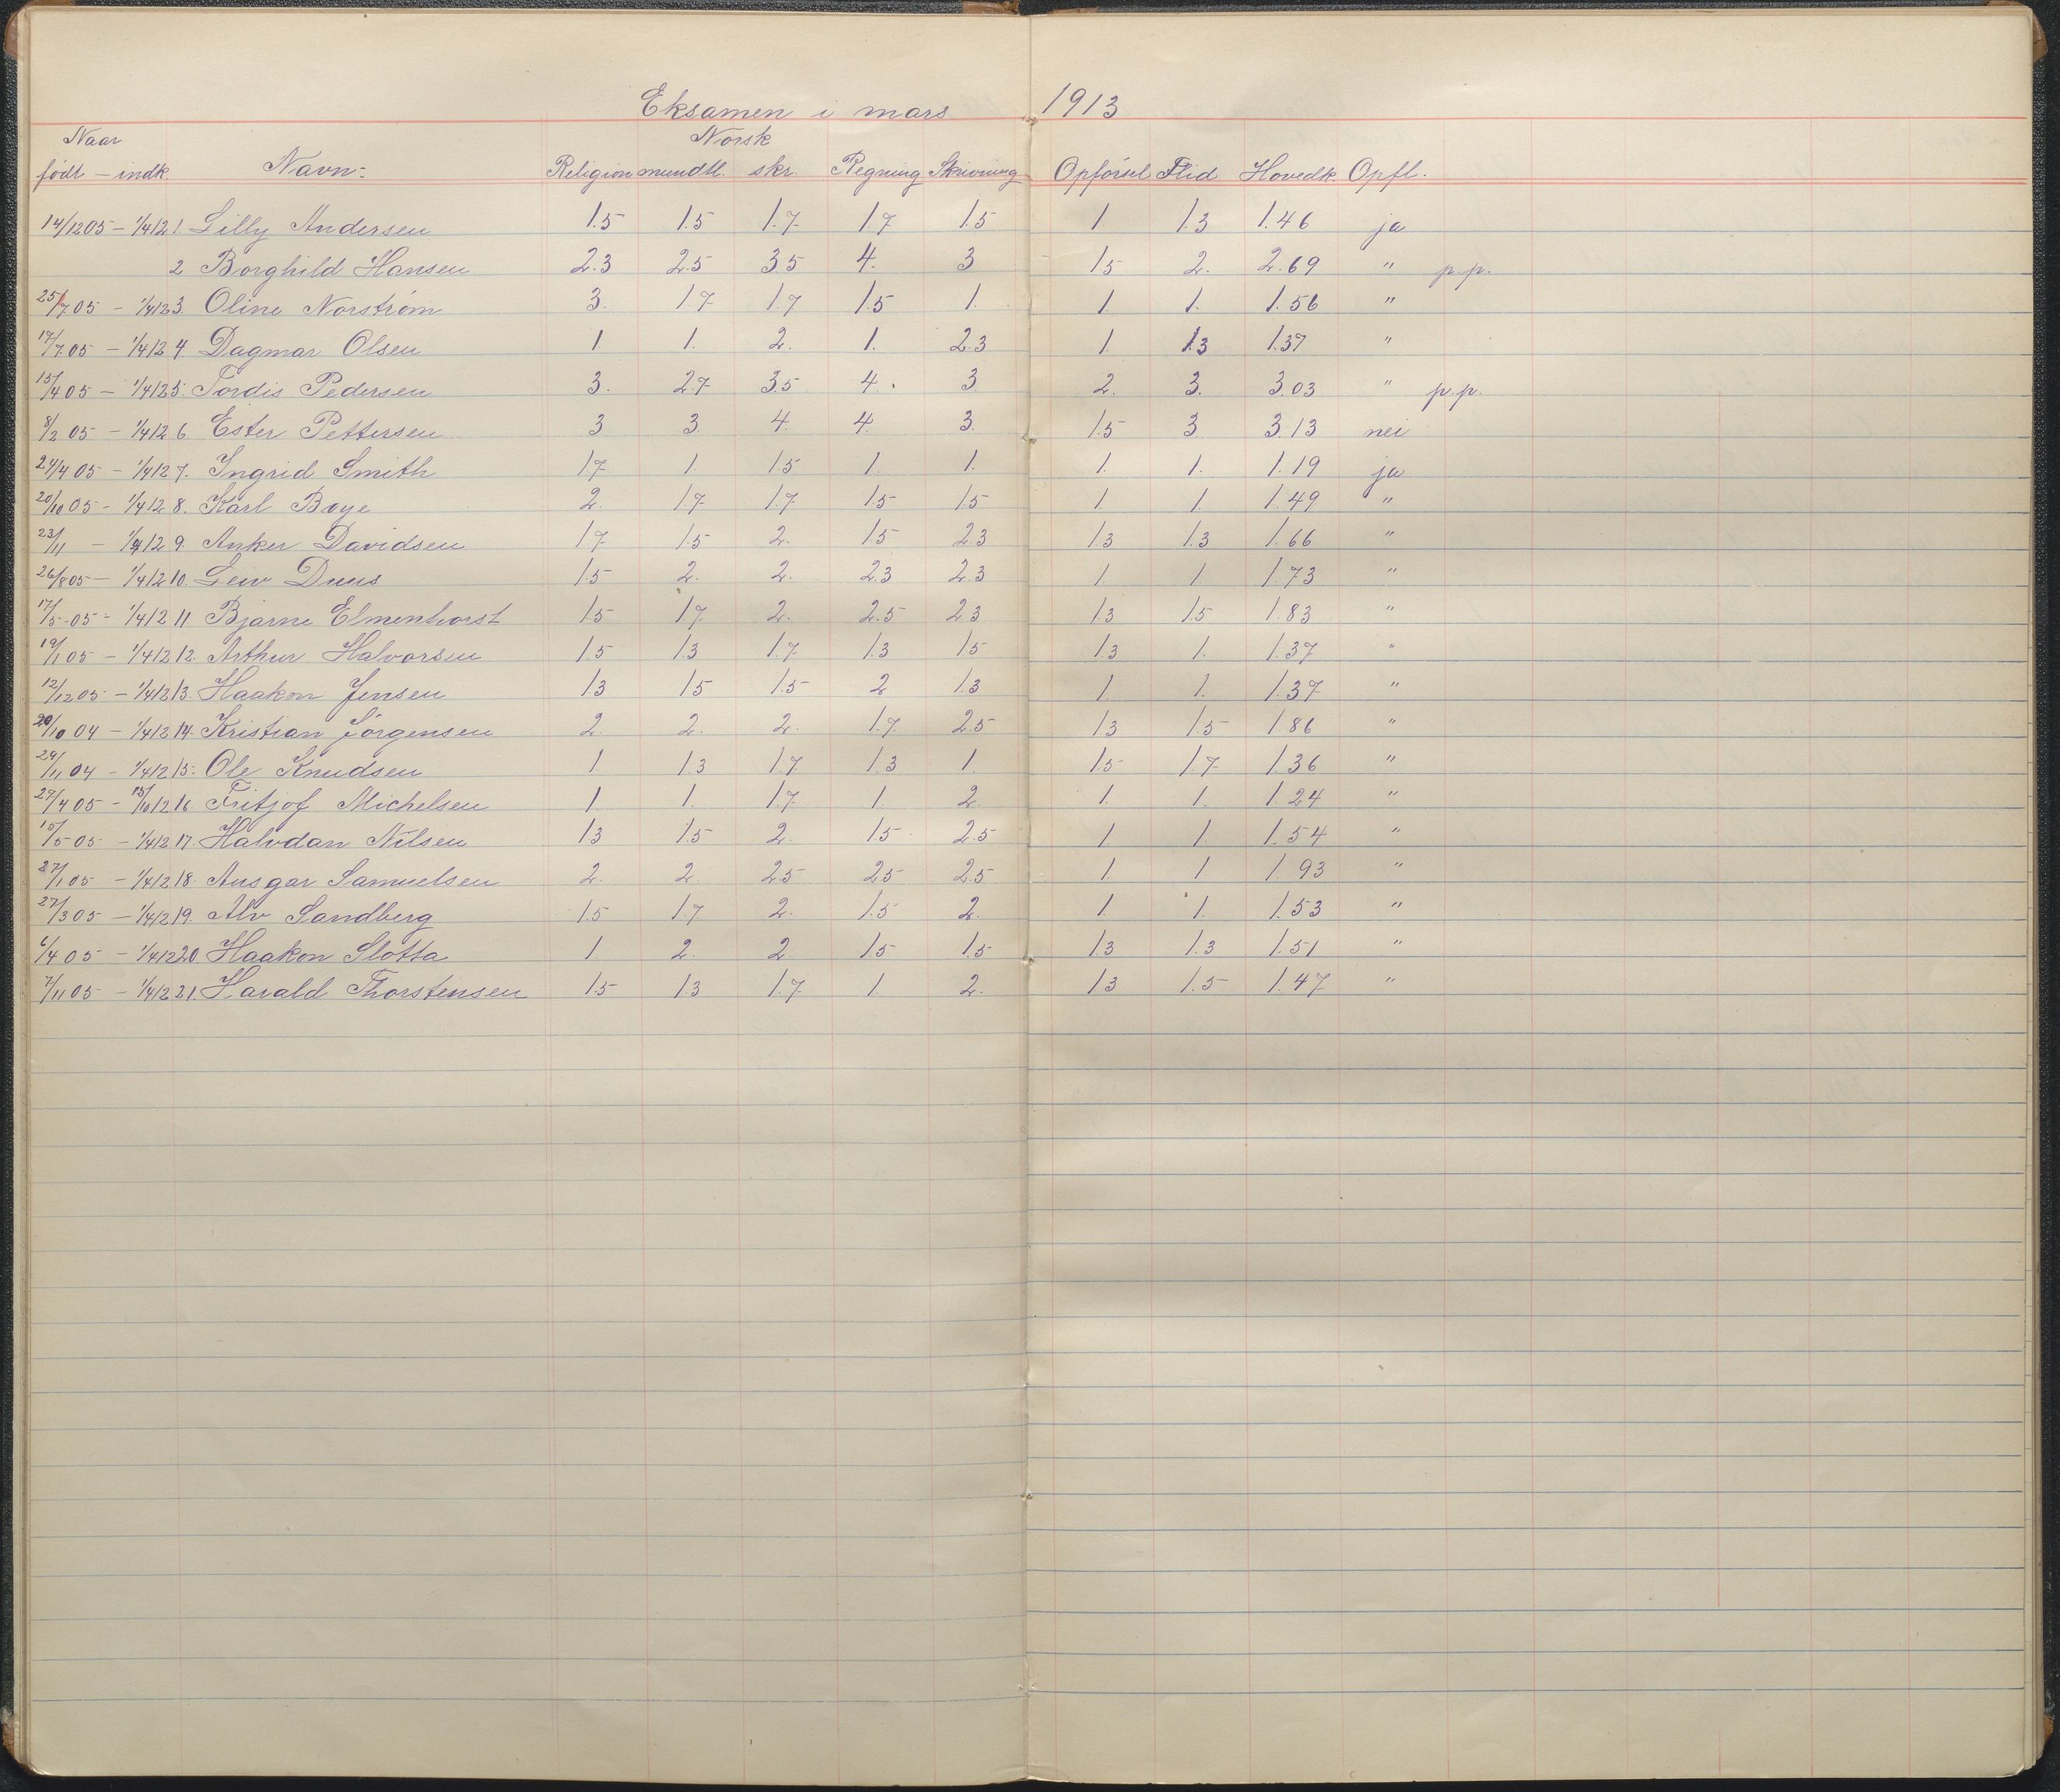 Eksamen i mars 1913
Naar Norsk
født - indk Navn: Religion mundtl. skr. Regning Skrivning Opførsel Flid Hovedk. Opfl.
14/12 05 - 1/4 12 1. Lilly Andersen 1.5 1.5 1.7 1.7 1.5 1 1.3 1.46 ja
2 Borghild Hansen 2.3 2.5 3.5 4. 3 1.5 2. 2.69 " p.p.
25/7 05 - 1/4 12 3. Oline Norstrøm 3. 1.7 1.7 1.5 1. 1. 1. 1.56 "
17/7 05 - 1/4 12 4. Dagmar Olsen 1 1. 2. 1. 2.3 1. 1.3 1.37 "
15/4 05 - 1/4 12 5. Tordis Pedersen 3. 2.7 3.5 4. 3 2. 3. 3.03 " p.p.
8/2 05 - 1/4 12 6. Ester Pettersen 3 3 4. 4. 3. 1.5 3 3.13 nei
24/4 05 - 1/4 12 7. Ingrid Smith 1.7 1 1.5 1. 1. 1. 1. 1.19 ja
20/10 05 - 1/4 12 8. Karl Boye 2. 1.7 1.7 1.5 1.5 1. 1. 1.49 "
23/11 - 1/4 12 9. Anker Davidsen 1.7 1.5 2. 1.5 2.3 1.3 1.3 1.66 "
26/8 05 - 1/4 12 10. Leiv Duus 1.5 2. 2. 2.3 2.3 1 1 1.73 "
17/5 - 05 - 1/4 12 11 Bjarne Elmenhorst 1.5 1.7 2. 2.5 2.3 1.3 1.5 1.83 "
19/1 05 - 1/4 12 12. Arthur Halvorsen 1.5 1.3 1.7 1.3 1.5 1.3 1. 1.37 "
12/12 05 - 1/4 12 13. Haakon Jensen 1.3 1.5 1.5 2 1.3 1 1. 1.37 "
20/10 04 - 1/4 12 14. Kristian Jørgensen 2. 2. 2. 1.7 2.5 1.3 1.5 1.86 "
29/11 04 - 1/4 12 15. Ole Knudsen 1 1.3 1.7 1.3 1. 1.5 1.7 1.36 "
27/4 05 - 15/10 12 16 Fritjof Michelsen 1 1. 1.7 1. 2. 1. 1. 1.24 "
15/5 05 - 1/4 12 17. Halvdan Nilsen 1.3 1.5 2. 1.5 2.5 1 1. 1.54 "
27/1 05 - 1/4 12 18. Ansgar Samuelsen 2. 2. 2.5 2.5 2.5 1 1 1.93 "
27/3 05 - 1/4 12 19. Alv Sandberg 1.5 1.7 2. 1.5 2. 1. 1. 1.53 "
6/4 05 - 1/4 12 20. Haakon Slotta 1 2. 2. 1.5 1.5 1.3 1.3 1.51 "
7/11 05 - 1/4 12 21. Harald Thorstensen 1.5 1.3 1.7 1 2. 1.3 1.5 1.47 "